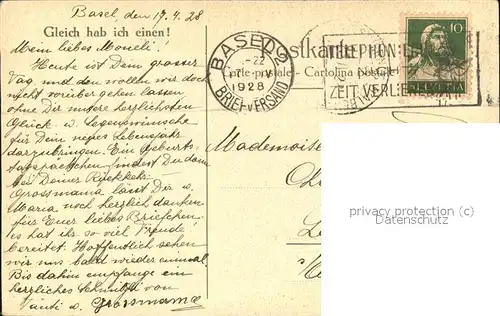 Basel den 17.4.28
Gleich hab ich einen!
Mein liebes Moneli!
Heute ist Dein grosser
Tag und den wollen wir doch
nicht vorüber gehen lassen
ohne Dir unsere herzlichsten
Glück u. Segenswünsche
für Dein neues Lebensjahr
darzubringen. Ein Geburts-
tagspäckchen findest Du dann
bei Deiner Rückkehr.
Grossmama lässt Dir u.
Maria noch herzlich danken
für Euer liebes Briefchen.
Es hat ihr so viel Freude
bereitet. Hoffentlich sehen
wir uns bald wieder einmal.
Bis dahin empfange ein
herzliches Schmützli von
Tanti u. Grossmama
BASEL 2
-22
1928
BRIEFVERSAND
Postkarte
Carte postale - Cartolina postale
TELEPHON
ZEIT VERLIE
10
Mademoise
privacy protection (c)
Datenschutz